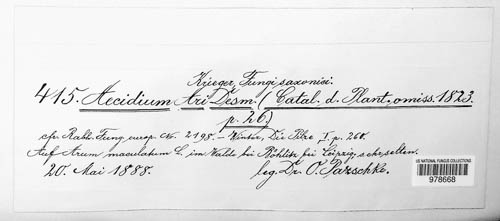 Krieger, Fungi saxonici.
415. Aecidium Ari Desm. (Catal. d. Plant. omiss. 1823.
p. 26)
cfr. Rabh. Fung. europ. No. 2198. – Winter, Die Pilze I p. 268.
Auf Arum maculatum L. im Walde bei Böhlitz bei Leipzig, sehr selten.
20. Mai 1888. leg. Dr. O. Pazschke.
US NATIONAL FUNGUS COLLECTIONS
978668